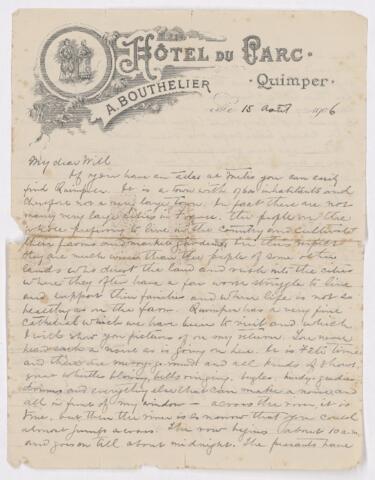 HÔTEL DU PARC
Quimper
A. BOUTHELIER
le 15 août 1906
My dear Will
If you have an atlas at Miles you can easily
find Quimper. It is a town with inhabitants and
therefore not a very large town. In fact there are not
many very large cities in France. The people on the
whole preferring to live in the country and cultivate
their farms and market gardens. In this respect
they are much wiser than the people of some other
lands who desert the land and rush into the cities
where they often have a far worse struggle to live
and support their families and where life is not so
healthy as on the farm. Quimper has a very fine
cathedral which we have been to visit and which
I will show you pictures of on my return. You never
heard such a noise as is going on here. It is Fête time
and there are merry go rounds and all kinds of shows,
great whistles blowing, bells ringing, bugles, hurdy gurdies
drums and everything else that can make a noise and
all in front of my window - across the river, it is
true, but then the river is so narrow that you could
almost jump across. The row begins about 10 a.m.
and goes on till about midnight. The peasants have